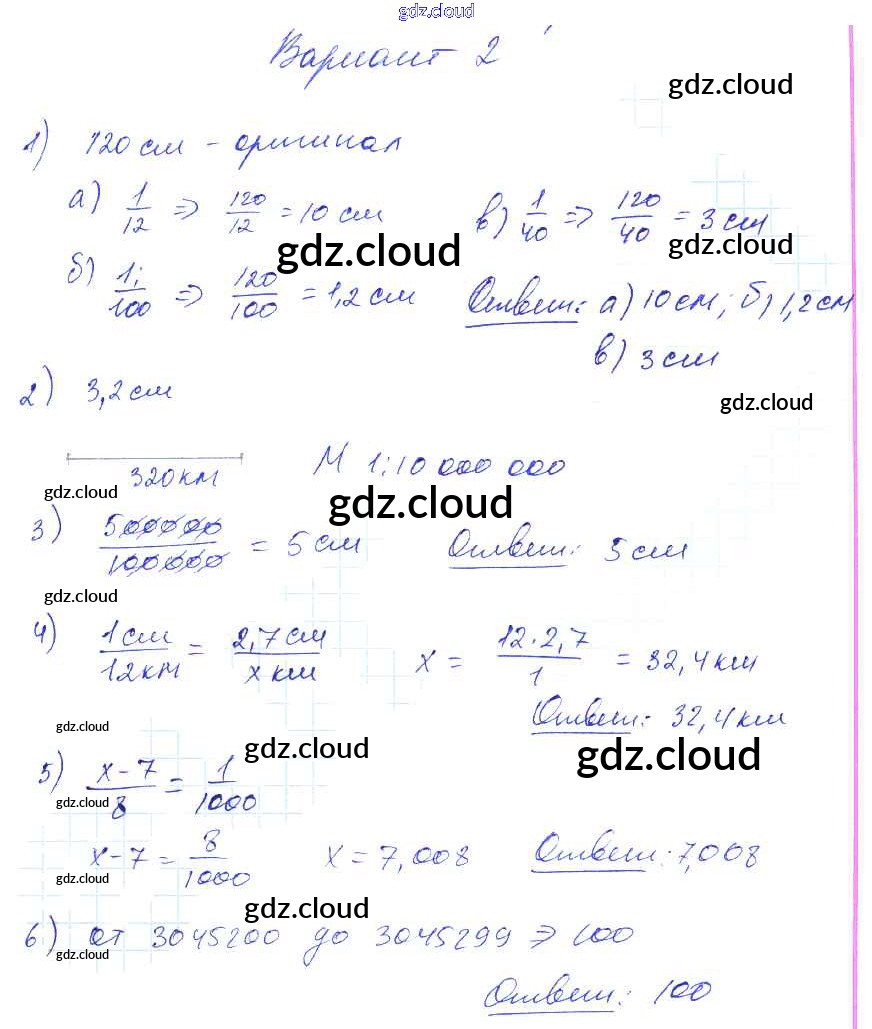 gdz.cloud
Вариант 2
gdz.cloud
1) 120 см - оригинал
а) 1/12 => 120/12 = 10 см
в) 1/40 => 120/40 = 3 см
gdz.cloud
gdz.cloud
б) 1:/100 => 120/100 = 1,2 см
Ответ: а) 10 см; б) 1,2 см
в) 3 см
2) 3,2 см
gdz.cloud
320 км
М 1:10 000 000
gdz.cloud
gdz.cloud
3) 500000/100000 = 5 см
Ответ: 5 см
gdz.cloud
4) 1 см/12 км = 2,7 см/х км
х = 12·2,7/1 = 32,4 км
Ответ: 32,4 км
gdz.cloud
gdz.cloud
gdz.cloud
5) х-7/8 = 1/1000
gdz.cloud
х-7 = 8/1000
х = 7,008
Ответ: 7,008
gdz.cloud
gdz.cloud
6) от 3045200 до 3045299 => 100
gdz.cloud
Ответ: 100